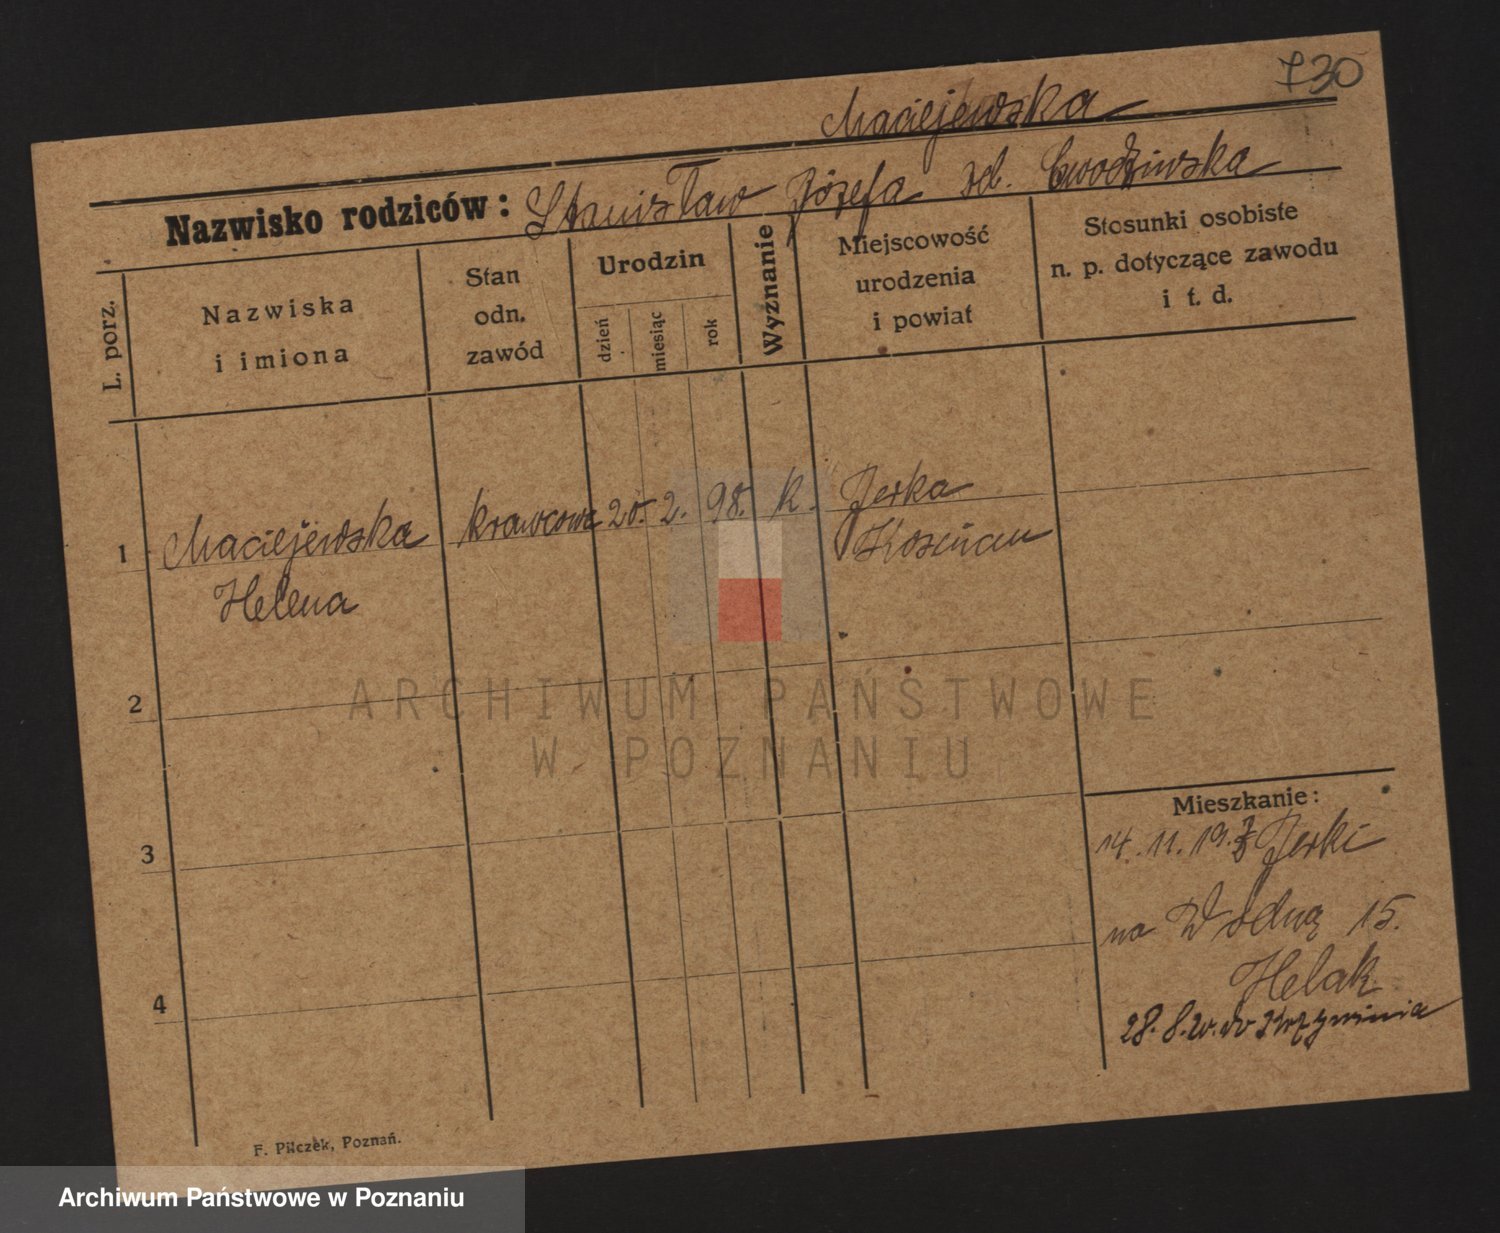 730
Maciejewska
Nazwisko rodziców: Stanisław Józefa zd. Gwoździewska
L. porz.
Nazwiska i imiona
Stan odn. zawód
Urodzin
dzień
miesiąc
rok
Wyznanie
Miejscowość urodzenia i powiat
Stosunki osobiste n. p. dotyczące zawodu i t. d.
1 Maciejewska krawcowa 20. 2. 98. k. Jerka
Helena Kościan
2
3
4
Mieszkanie:
14. 11. 19. z Jerki
na Wodną 15.
Helak
28. 8. 20. do Krzywinia
F. Pilczek, Poznań.
ARCHIWUM PAŃSTWOWE
W POZNANIU
Archiwum Państwowe w Poznaniu